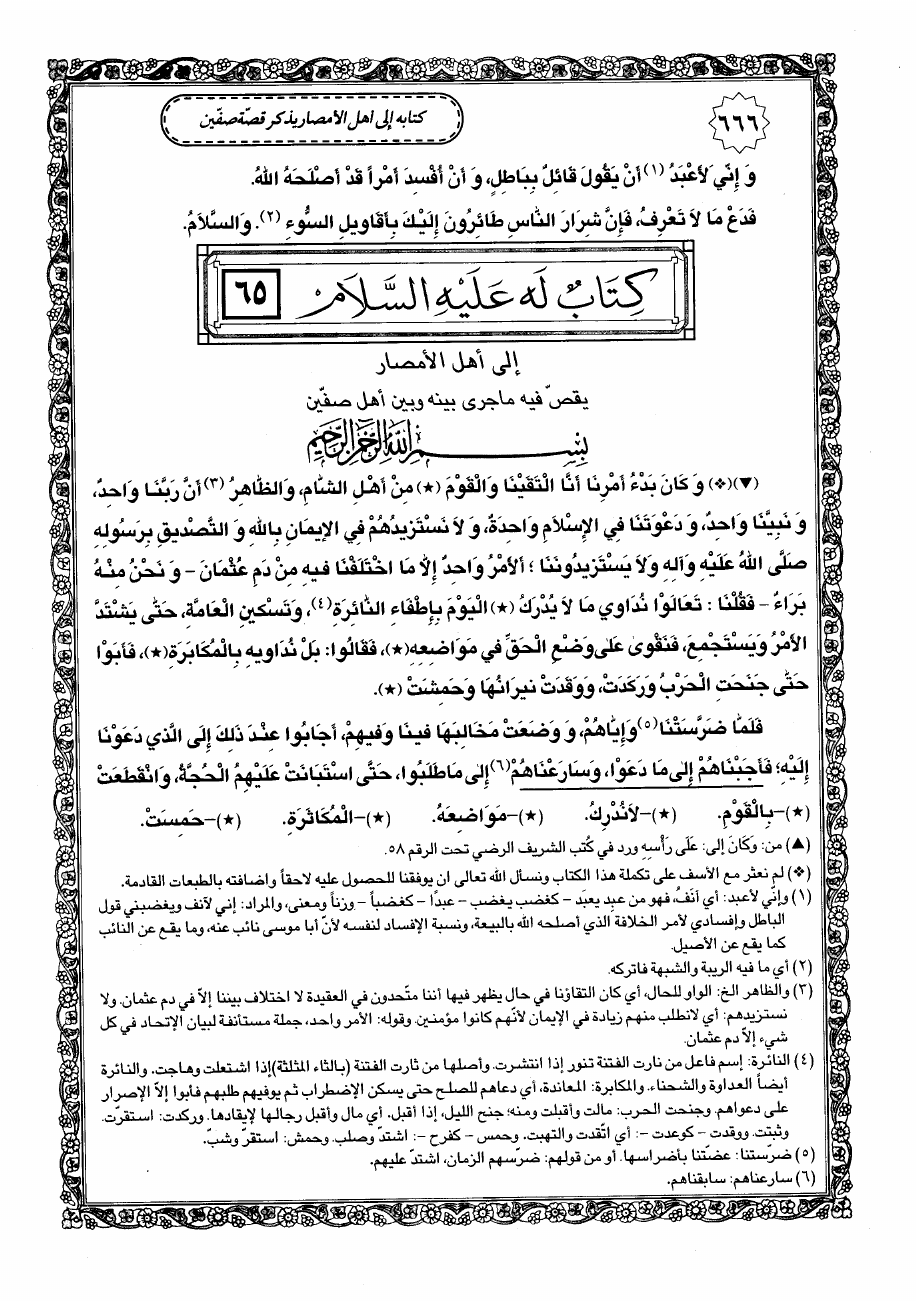 ٦٦٦
كتابه إلى أهل الأمصار يذكر قصّة صفّين
وَ إِنِّي لَأَعْبَدُ (١) أَنْ يَقُولَ قَائِلٌ بِبَاطِلٍ، وَ أَنْ أُفْسِدَ أَمْراً قَدْ أَصْلَحَهُ اللهُ.
فَدَعْ مَا لاَ تَعْرِفُ، فَإِنَّ شِرَارَ النَّاسِ طَائِرُونَ إِلَيْكَ بِأَقَاوِيلِ السُّوءِ (٢). وَالسَّلاَمُ.
كِتَابٌ لَه عَلَيْهِ السَّلَام
٦٥
إلى أهل الأمصار
يقصّ فيه ماجرى بينه وبين أهل صفّين
بِسْمِ اللهِ الرَّحْمٰنِ الرَّحِيمِ
(▼)(❖) وَ كَانَ بَدْءُ أَمْرِنَا أَنَّا الْتَقَيْنَا وَالْقَوْمَ (★) مِنْ أَهْلِ الشَّامِ، وَالظَّاهِرُ (٣) أَنَّ رَبَّنَا وَاحِدٌ،
وَ نَبِيَّنَا وَاحِدٌ، وَ دَعْوَتَنَا فِي الإِسْلاَمِ وَاحِدَةٌ، وَ لاَ نَسْتَزِيدُهُمْ فِي الإِيمَانِ بِاللهِ وَ التَّصْدِيقِ بِرَسُولِهِ
صَلَّى اللهُ عَلَيْهِ وَآلِهِ وَلاَ يَسْتَزِيدُونَنَا ؛ اَلأَمْرُ وَاحِدٌ إِلاَّ مَا اخْتَلَفْنَا فيهِ مِنْ دَمِ عُثْمَانَ - وَ نَحْنُ مِنْهُ
بَرَاءٌ - فَقُلْنَا : تَعَالَوْا نُدَاوِي مَا لاَ يُدْرَكُ (★) الْيَوْمَ بِإِطْفَاءِ النَّائِرَةِ (٤)، وَتَسْكِينِ الْعَامَّةِ، حَتَّى يَشْتَدَّ
الأَمْرُ وَيَسْتَجْمِعَ، فَنَقْوى عَلى وَضْعِ الْحَقِّ في مَوَاضِعِهِ (★)، فَقَالُوا: بَلْ نُدَاويهِ بِالْمُكَابَرَةِ (★)، فَأَبَوْا
حَتَّى جَنَحَتِ الْحَرْبُ وَرَكَدَتْ، وَوَقَدَتْ نيرَانُهَا وَحَمِشَتْ (★).
فَلَمَّا ضَرَّسَتْنَا (٥) وَإِيَّاهُمْ، وَ وَضَعَتْ مَخَالِبَهَا فينَا وَفيهِمْ، أَجَابُوا عِنْدَ ذَلِكَ إِلَى الَّذي دَعَوْنَا
إِلَيْهِ؛ فَأَجَبْنَاهُمْ إِلى مَا دَعَوْا، وَسَارَعْنَاهُمْ (٦) إِلى مَا طَلَبُوا، حَتَّى اسْتَبَانَتْ عَلَيْهِمُ الْحُجَّةُ، وَانْقَطَعَتْ
(★)-بِالْقَوْمِ. (★)-لاَنُدْرِكُ. (★)-مَوَاضِعَهُ. (★)-الْمُكَاثَرَةِ. (★)-حَمِسَتْ.
(▲) من: وَكَانَ إلى: عَلَى رَأْسِهِ ورد في كُتب الشريف الرضي تحت الرقم ٥٨.
(❖) لم نعثر مع الأسف على تكملة هذا الكتاب ونسأل الله تعالى ان يوفقنا للحصول عليه لاحقاً واضافته بالطبعات القادمة.
(١) وإنّي لأعبد: أي أنَفُ، فهو من عبِد يعبَد - كغضب يغضب - عبدًا - كغضباً - وزناً ومعنى، والمراد: إني لآنف ويغضبني قول
الباطل وإفسادي لأمر الخلافة الذي أصلحه الله بالبيعة، ونسبة الإفساد لنفسه لأنّ أبا موسى نائب عنه، وما يقع عن النائب
كما يقع عن الأصيل.
(٢) أي ما فيه الريبة والشبهة فاتركه.
(٣) والظاهر الخ: الواو للحال، أي كان التقاؤنا في حال يظهر فيها أننا متّحدون في العقيدة لا اختلاف بيننا إلاّ في دم عثمان. ولا
نستزيدهم: أي لانطلب منهم زيادة في الإيمان لأنّهم كانوا مؤمنين. وقوله: الأمر واحد، جملة مستأنفة لبيان الإتحاد في كل
شيء إلاّ دم عثمان.
(٤) النائرة: إسم فاعل من نارت الفتنة تنور إذا انتشرت. وأصلها من ثارت الفتنة (بالثاء المثلثة)إذا اشتعلت وهاجت. والنائرة
أيضاً العداوة والشحناء. والمكابرة: المعاندة، أي دعاهم للصلح حتى يسكن الإضطراب ثم يوفيهم طلبهم فأبوا إلاّ الإصرار
على دعواهم. وجنحت الحرب: مالت وأقبلت ومنه؛ جنح الليل، إذا أقبل. أي مال وأقبل رجالها لإيقادها. وركدت: استقرّت.
وثبتت. ووقدت - كوعدت -: أي اتّقدت والتهبت. وحمس - كفرح -: اشتدّ وصلب. وحمش: استقرّ وشبّ.
(٥) ضرّستنا: عضّتنا بأضراسها. أو من قولهم: ضرّسهم الزمان، اشتدّ عليهم.
(٦) سارعناهم: سابقناهم.